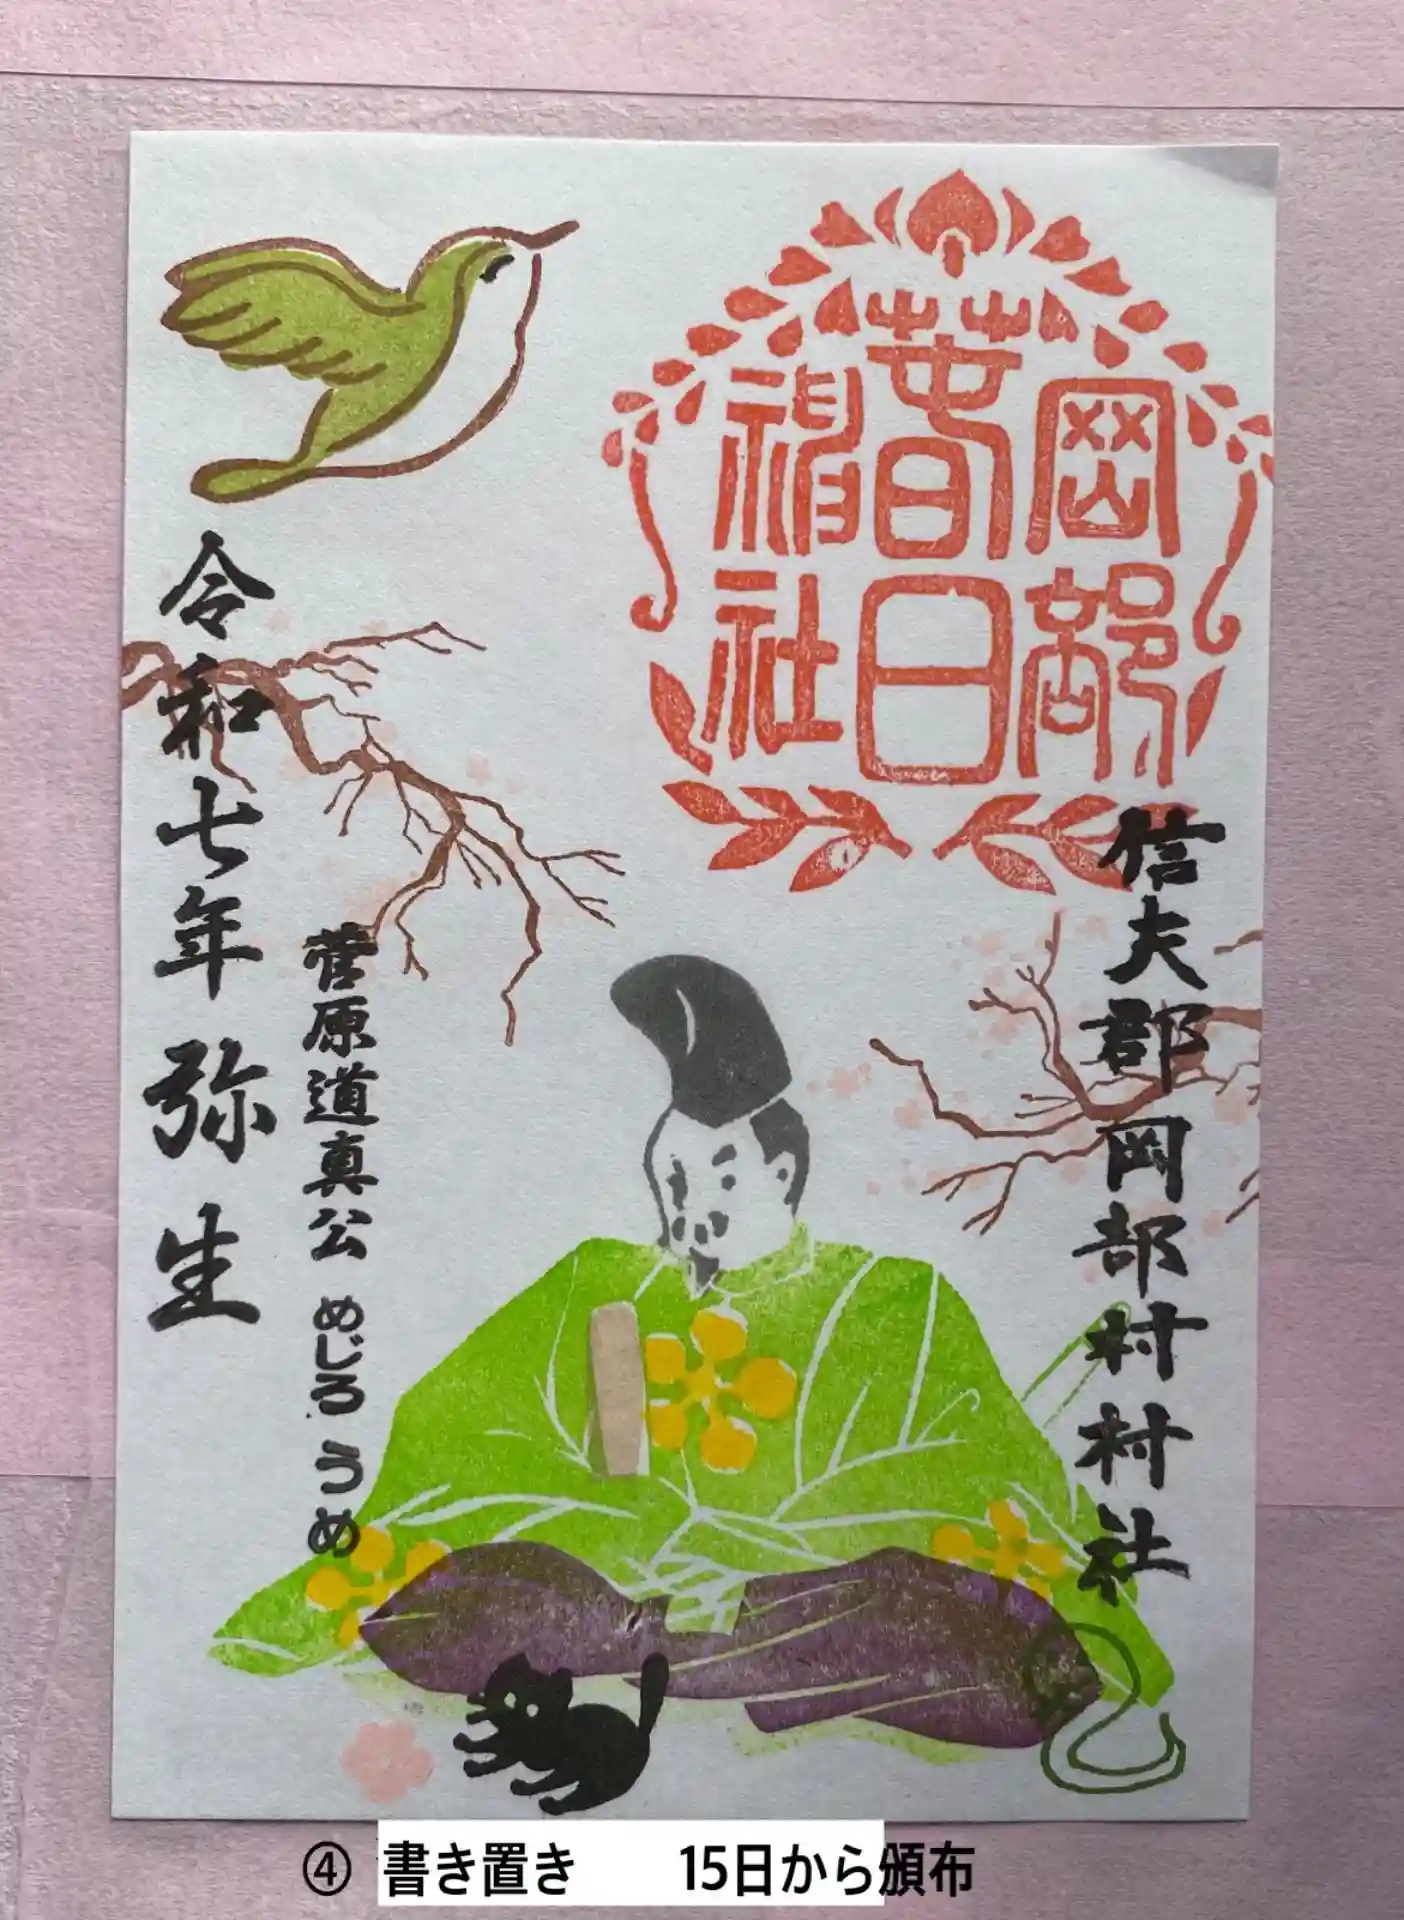 岡部
春日
神社
信夫郡岡部村村社
菅原道真公 めじろ うめ
令和七年 弥生
④ 書き置き 15日から頒布